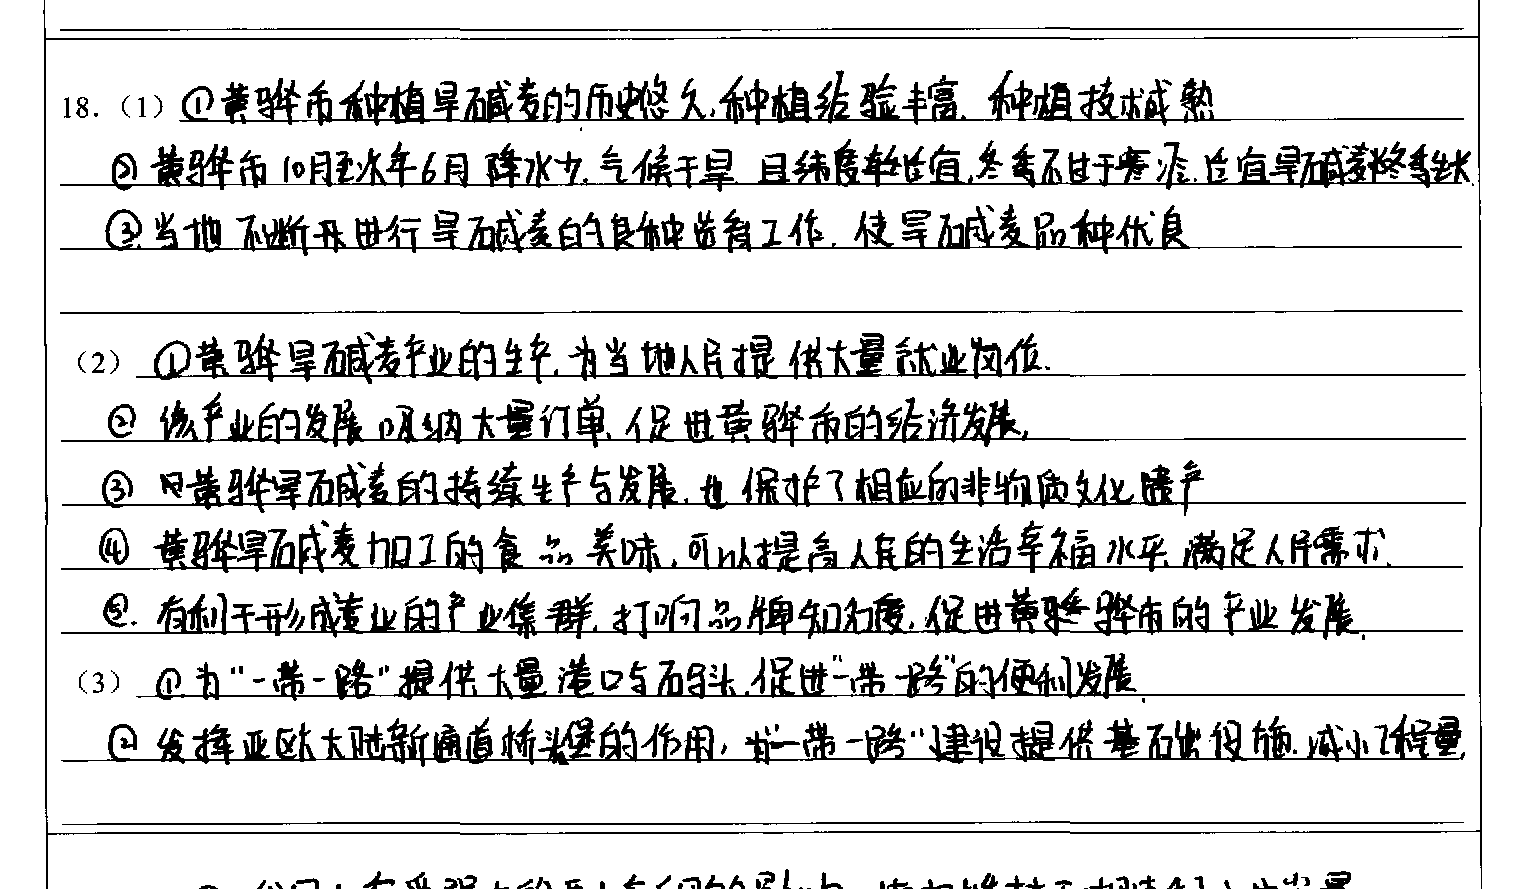 18.（1）①黄骅市种植旱碱麦的历史悠久,种植经验丰富.种植技术成熟
②黄骅市10月至次年6月降水少.气候干旱且纬度较适宜,冬季不甘于寒冷.适宜旱碱麦冬季生长
③当地不断开进行旱碱麦的良种培育工作.使旱碱麦品种优良
（2）①黄骅旱碱麦产业的生产.为当地人民提供大量就业岗位.
②该产业的发展吸纳大量订单.促进黄骅市的经济发展,
③因黄骅旱碱麦的持续生产与发展.也保护了相应的非物质文化遗产
④黄骅旱碱麦加工的食品美味.可以提高人民的生活幸福水平.满足人民需求.
⑤.有利于形成麦业的产业集群.打响品牌知名度.促进黄骅骅市的产业发展.
（3）①为"一带一路"提供大量港口与码头.促进"一带一路"的便利发展.
②发挥亚欧大陆新通道桥头堡的作用,为"一带一路"建设提供基础设施.减小工程量.